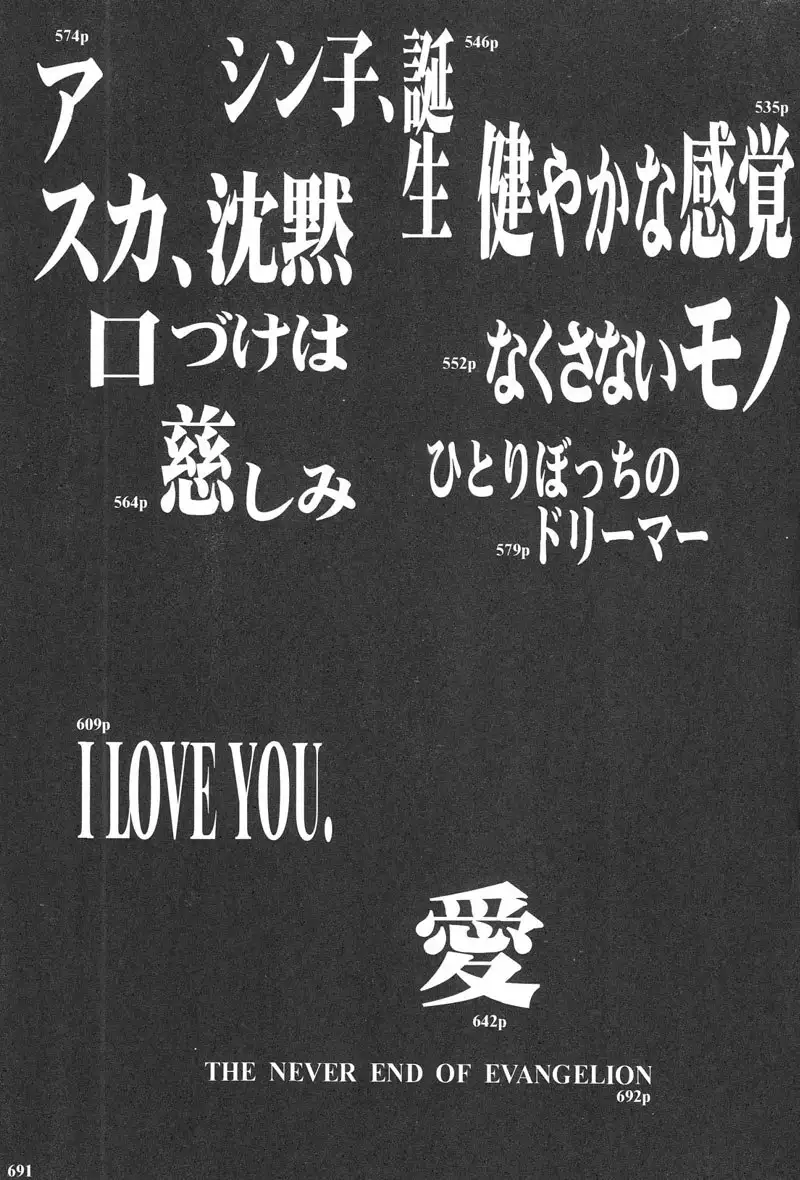 574p
アスカ、沈黙
シン子、誕生
546p
535p
健やかな感覚
口づけは
慈しみ
564p
552p
なくさないモノ
ひとりぼっちの
ドリーマー
579p
609p
I LOVE YOU.
愛
642p
THE NEVER END OF EVANGELION
692p
691